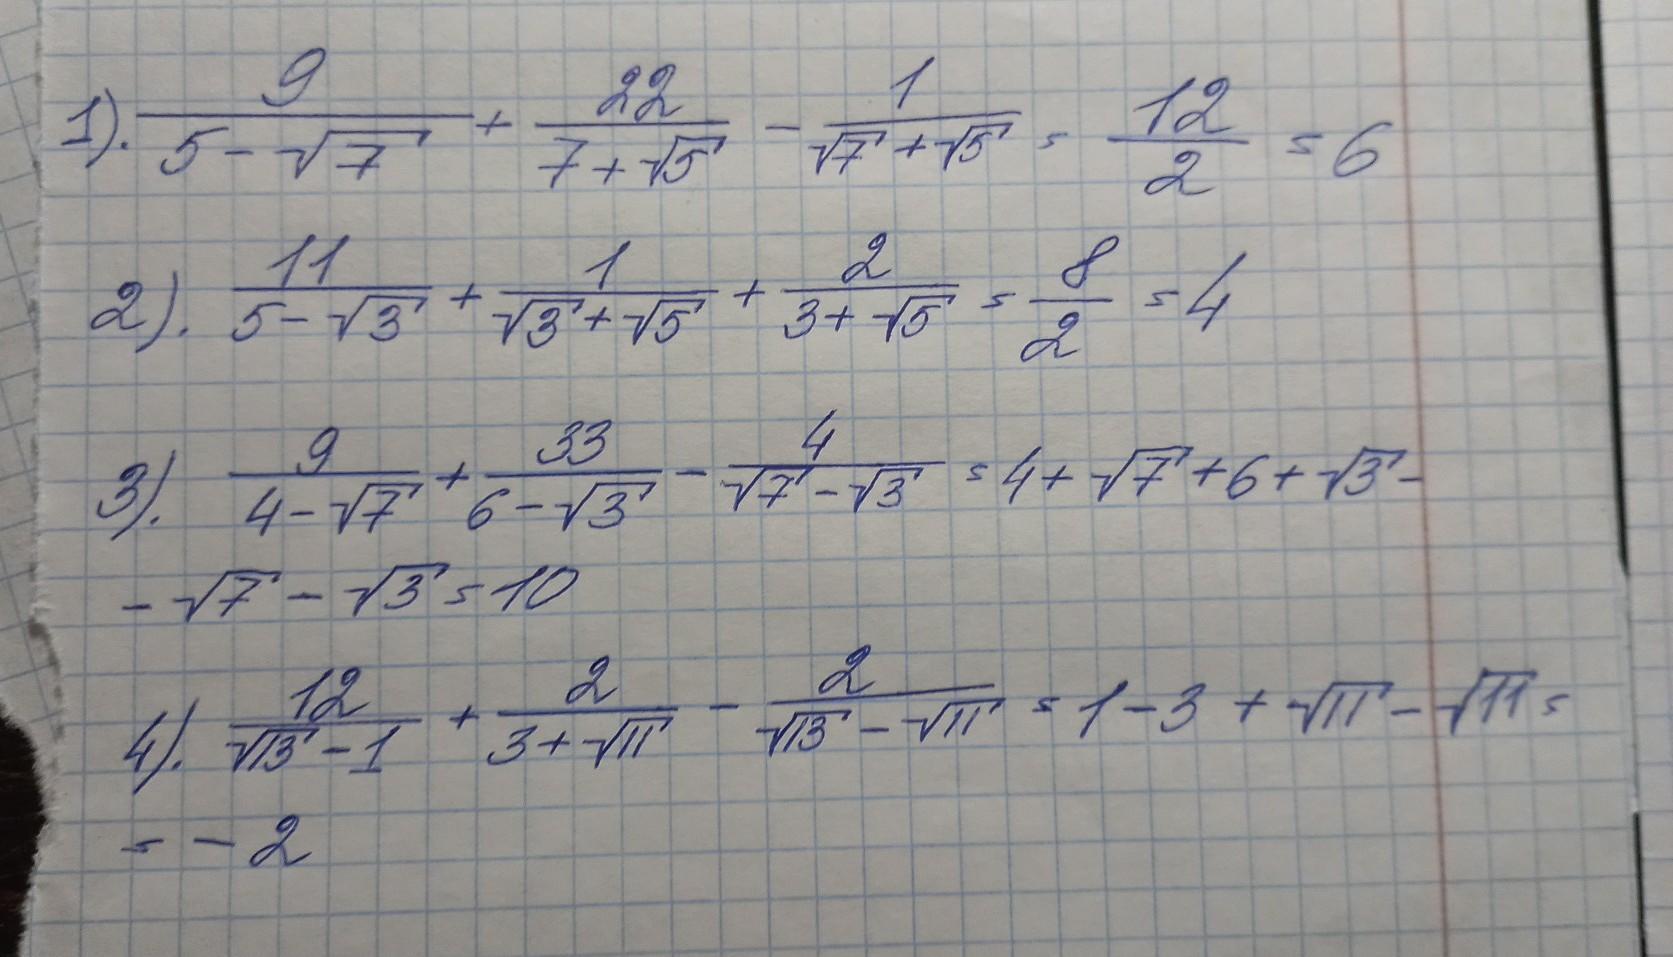 1). 9/(5-√7) + 22/(7+√5) - 1/(√7+√5) = 12/2 = 6
2). 11/(5-√3) + 1/(√3+√5) + 2/(3+√5) = 8/2 = 4
3). 9/(4-√7) + 33/(6-√3) - 4/(√7-√3) = 4+√7+6+√3-
-√7-√3=10
4). 12/(√13-1) + 2/(3+√11) - 2/(√13-√11) = 1-3+√11-√11=
=-2